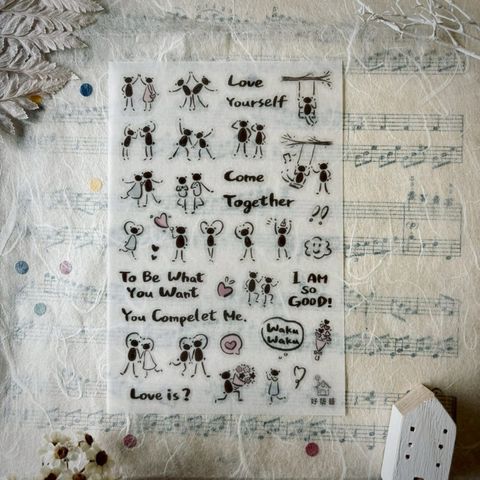 Love
Yourself
Come
Together
!?
To Be What
You Want
I AM
SO
GOOD!
You Compelet Me.
Waku
Waku
Love is?